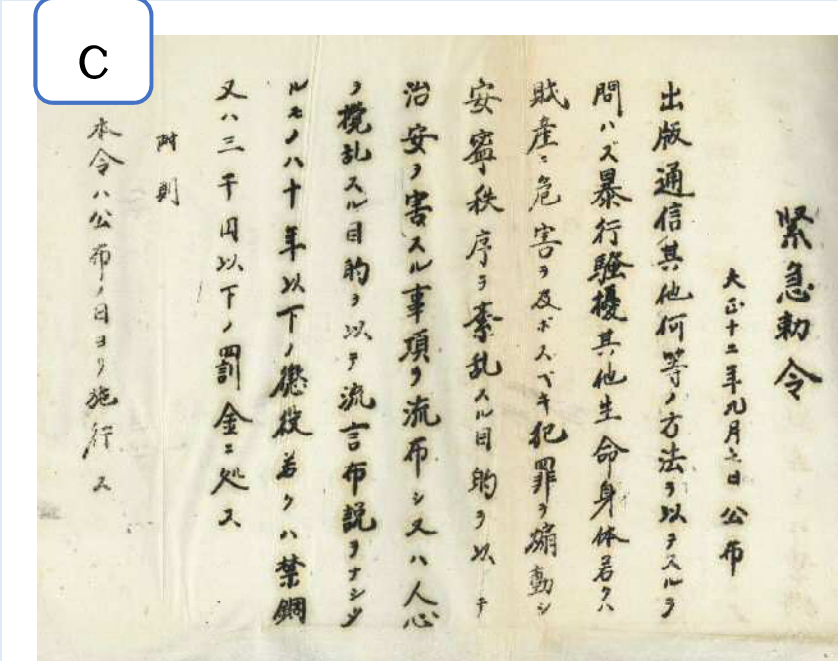 C
緊急勅令
大正十二年九月七日公布
出版通信其他何等ノ方法ヲ以テスルヲ
問ハズ暴行騒擾其他生命身体若クハ
財産ニ危害ヲ及ボスベキ犯罪ヲ煽動シ
安寧秩序ヲ紊乱スル目的ヲ以テ
治安ヲ害スル事項ヲ流布シ又ハ人心
ヲ攪乱スル目的ヲ以テ流言布説ヲナシタ
ルモノハ十年以下ノ懲役若クハ禁錮
又ハ三千円以下ノ罰金ニ処ス
附則
本令ハ公布ノ日ヨリ施行ス